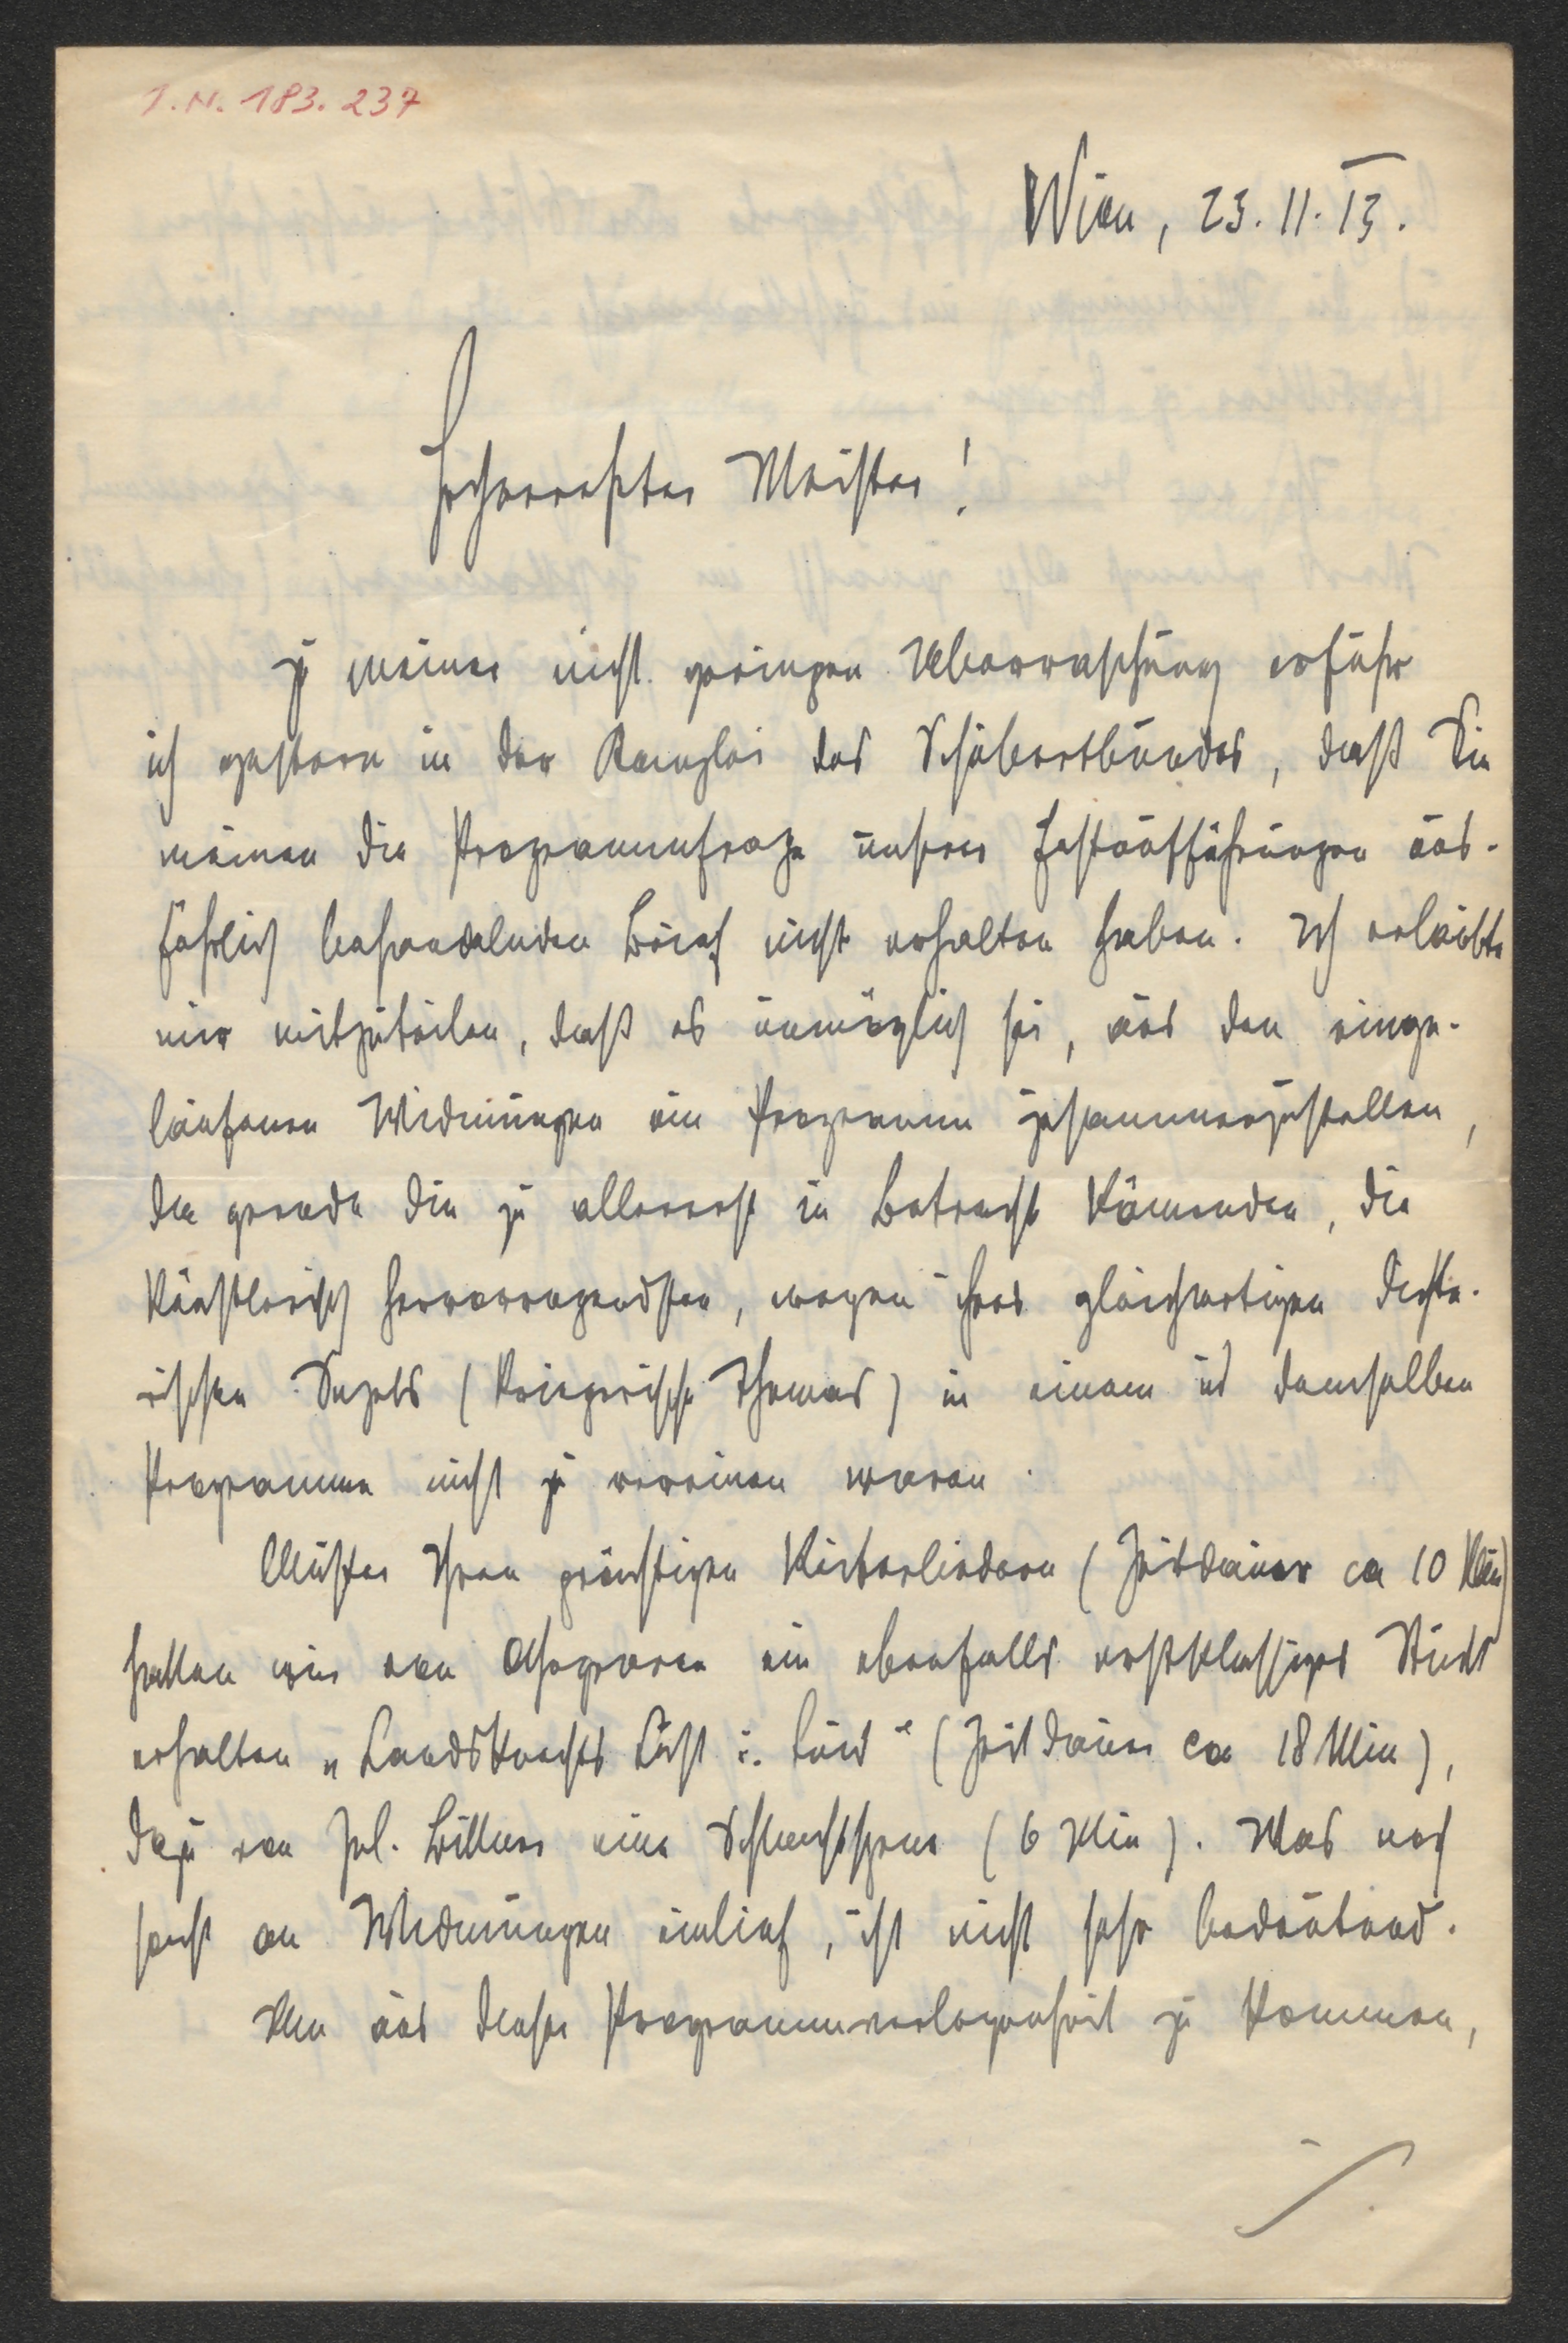 I.N. 183.237
Wien, 23. 11. 13.
Hochverehrter Meister!
Zu meiner nicht geringen Ueberraschung erfuhr
ich gestern in der Kanzlei des Schubertbundes, daß Sie
meinen die Programmfrage unserer Festaufführungen aus-
führlich behandelnden Brief nicht erhalten haben. Ich erlaubte
mir mitzuteilen, daß es unmöglich sei, aus den einge-
laufenen Widmungen ein Programm zusammenzustellen,
da gerade die zu allererst in Betracht kommenden, die
künstlerisch hervorragendsten, wegen ihres gleichartigen dichte-
rischen Sujets (kriegerische Themas) in einem und demselben
Programme nicht zu vereinen waren.
Außer Ihren prächtigen Reiterliedern (Zeitdauer ca 10 Min)
hatten wir von ein ebenfalls erstklassiges Stück
erhalten „Landsknechts Lust u. Leid“ (Zeitdauer ca 18 Min),
dazu von Jul. Bittner eine Schlachtszene (6 Min). Was noch
sonst an Widmungen einlief, ist nicht sehr bedeutend.
Um aus dieser Programmverlegenheit zu kommen,